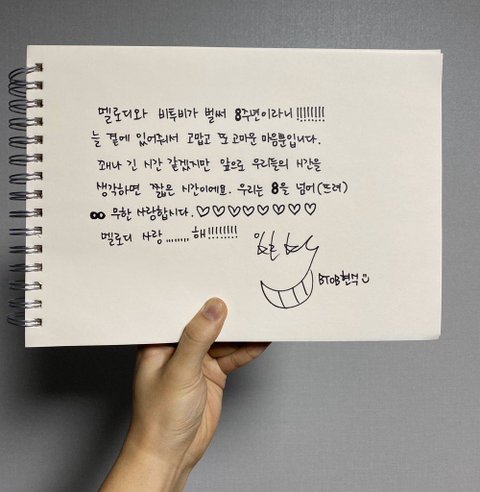 멜로디와 비투비가 벌써 8주년이라니!!!!!!!!
늘 곁에 있어줘서 고맙고 또 고마운 마음뿐입니다.
꽤나 긴 시간 같겠지만 앞으로 우리들의 시간을
생각하면 짧은 시간이에요. 우리는 8을 넘어(뜨려)
∞ 무한 사랑합시다. ♡♡♡♡♡♡♡♡
멜로디 사랑........해!!!!!!!!
BTOB현식